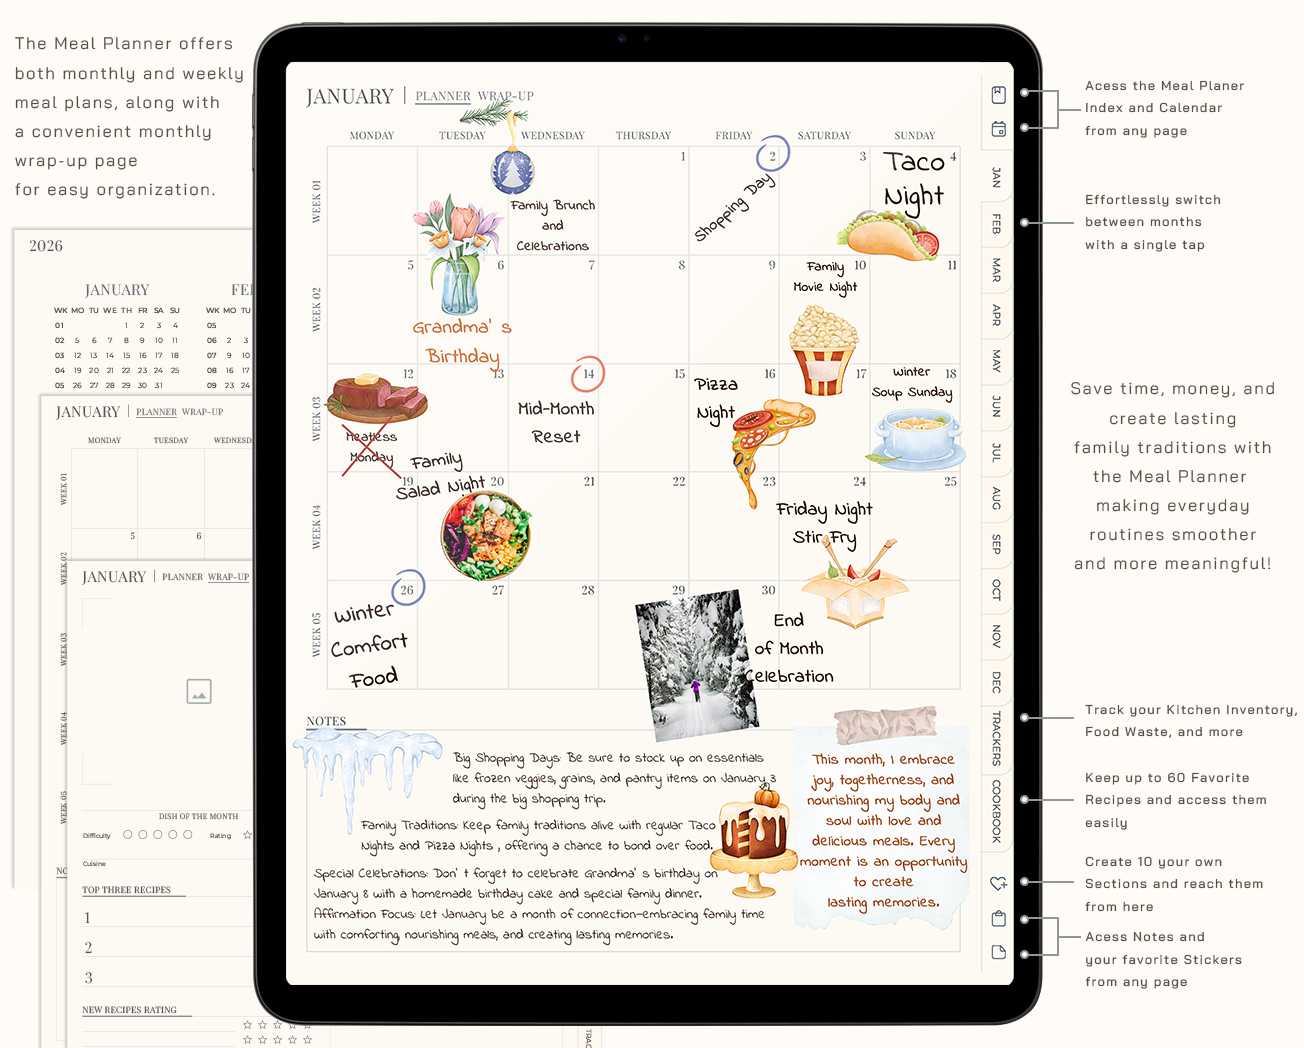 The Meal Planner offers
both monthly and weekly
meal plans, along with
a convenient monthly
wrap-up page
for easy organization.
2026
JANUARY
FE
WK MO TU WE TH FR SA SU
WK MO TU
01 1 2 3 4
05
02 5 6 7 8 9 10 11
06 2 3
03 12 13 14 15 16 17 18
07 9 10
04 19 20 21 22 23 24 25
08 16 17
05 26 27 28 29 30 31
09 23 24
JANUARY | PLANNER WRAP-UP
MONDAY TUESDAY WEDNESD
WEEK 01
5 6
WEEK 02
WEEK 03
WEEK 04
WEEK 05
NO
JANUARY | PLANNER WRAP-UP
DISH OF THE MONTH
Difficulty Rating
Cuisine
TOP THREE RECIPES
1
2
3
NEW RECIPES RATING
TRAC
JANUARY | PLANNER WRAP-UP
MONDAY TUESDAY WEDNESDAY THURSDAY FRIDAY SATURDAY SUNDAY
WEEK 01
1 2 3 4
Family Brunch
and
Celebrations
Shopping Day
Taco
Night
WEEK 02
5 6 7 8 9 10 11
Grandma' s
Birthday
Family
Movie Night
WEEK 03
12 13 14 15 16 17 18
Meatless
Monday
Mid-Month
Reset
Pizza
Night
Winter
Soup Sunday
WEEK 04
19 20 21 22 23 24 25
Family
Salad Night
Friday Night
Stir Fry
WEEK 05
26 27 28 29 30
Winter
Comfort
Food
End
of Month
Celebration
NOTES
Big Shopping Days: Be sure to stock up on essentials
like frozen veggies, grains, and pantry items on January 3
during the big shopping trip.
Family Traditions: Keep family traditions alive with regular Taco
Nights and Pizza Nights , offering a chance to bond over food.
Special Celebrations: Don' t forget to celebrate Grandma' s birthday on
January 8 with a homemade birthday cake and special family dinner.
Affirmation Focus: Let January be a month of connection—embracing family time
with comforting, nourishing meals, and creating lasting memories.
This month, I embrace
joy, togetherness, and
nourishing my body and
soul with love and
delicious meals. Every
moment is an opportunity
to create
lasting memories.
JAN
FEB
MAR
APR
MAY
JUN
JUL
AUG
SEP
OCT
NOV
DEC
TRACKERS
COOKBOOK
Acess the Meal Planer
Index and Calendar
from any page
Effortlessly switch
between months
with a single tap
Save time, money, and
create lasting
family traditions with
the Meal Planner
making everyday
routines smoother
and more meaningful!
Track your Kitchen Inventory,
Food Waste, and more
Keep up to 60 Favorite
Recipes and access them
easily
Create 10 your own
Sections and reach them
from here
Acess Notes and
your favorite Stickers
from any page